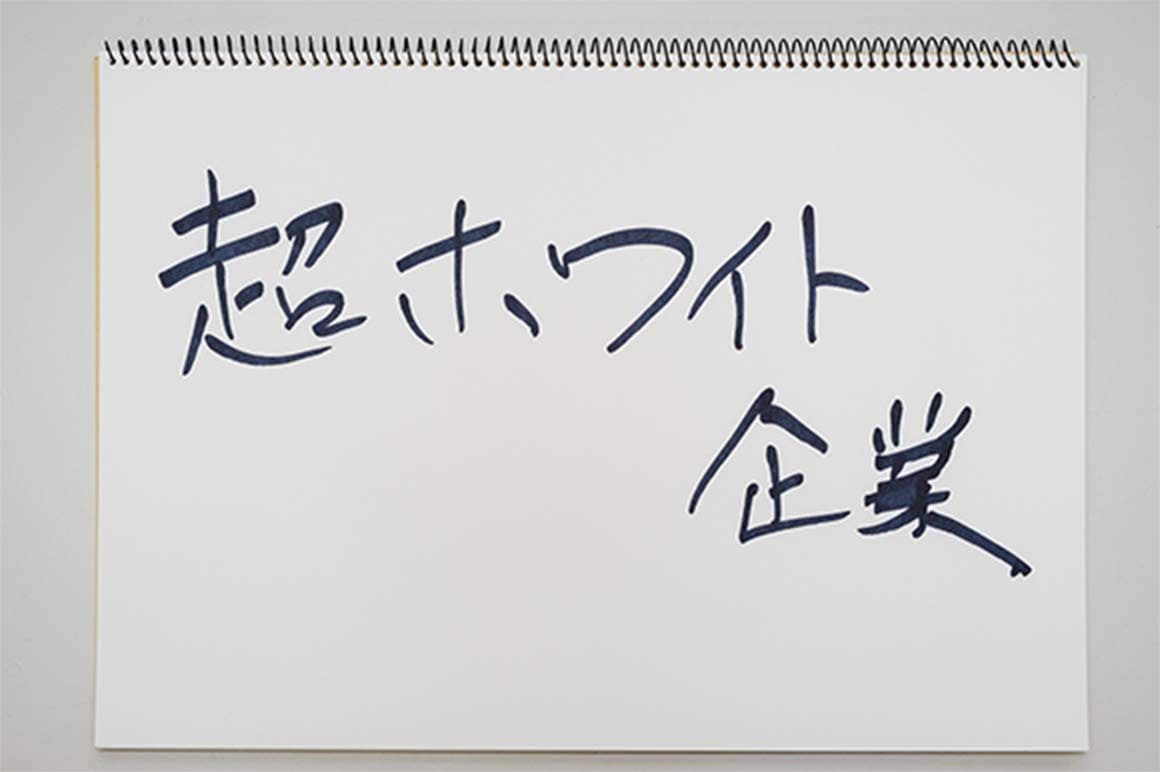 超ホワイト
企業